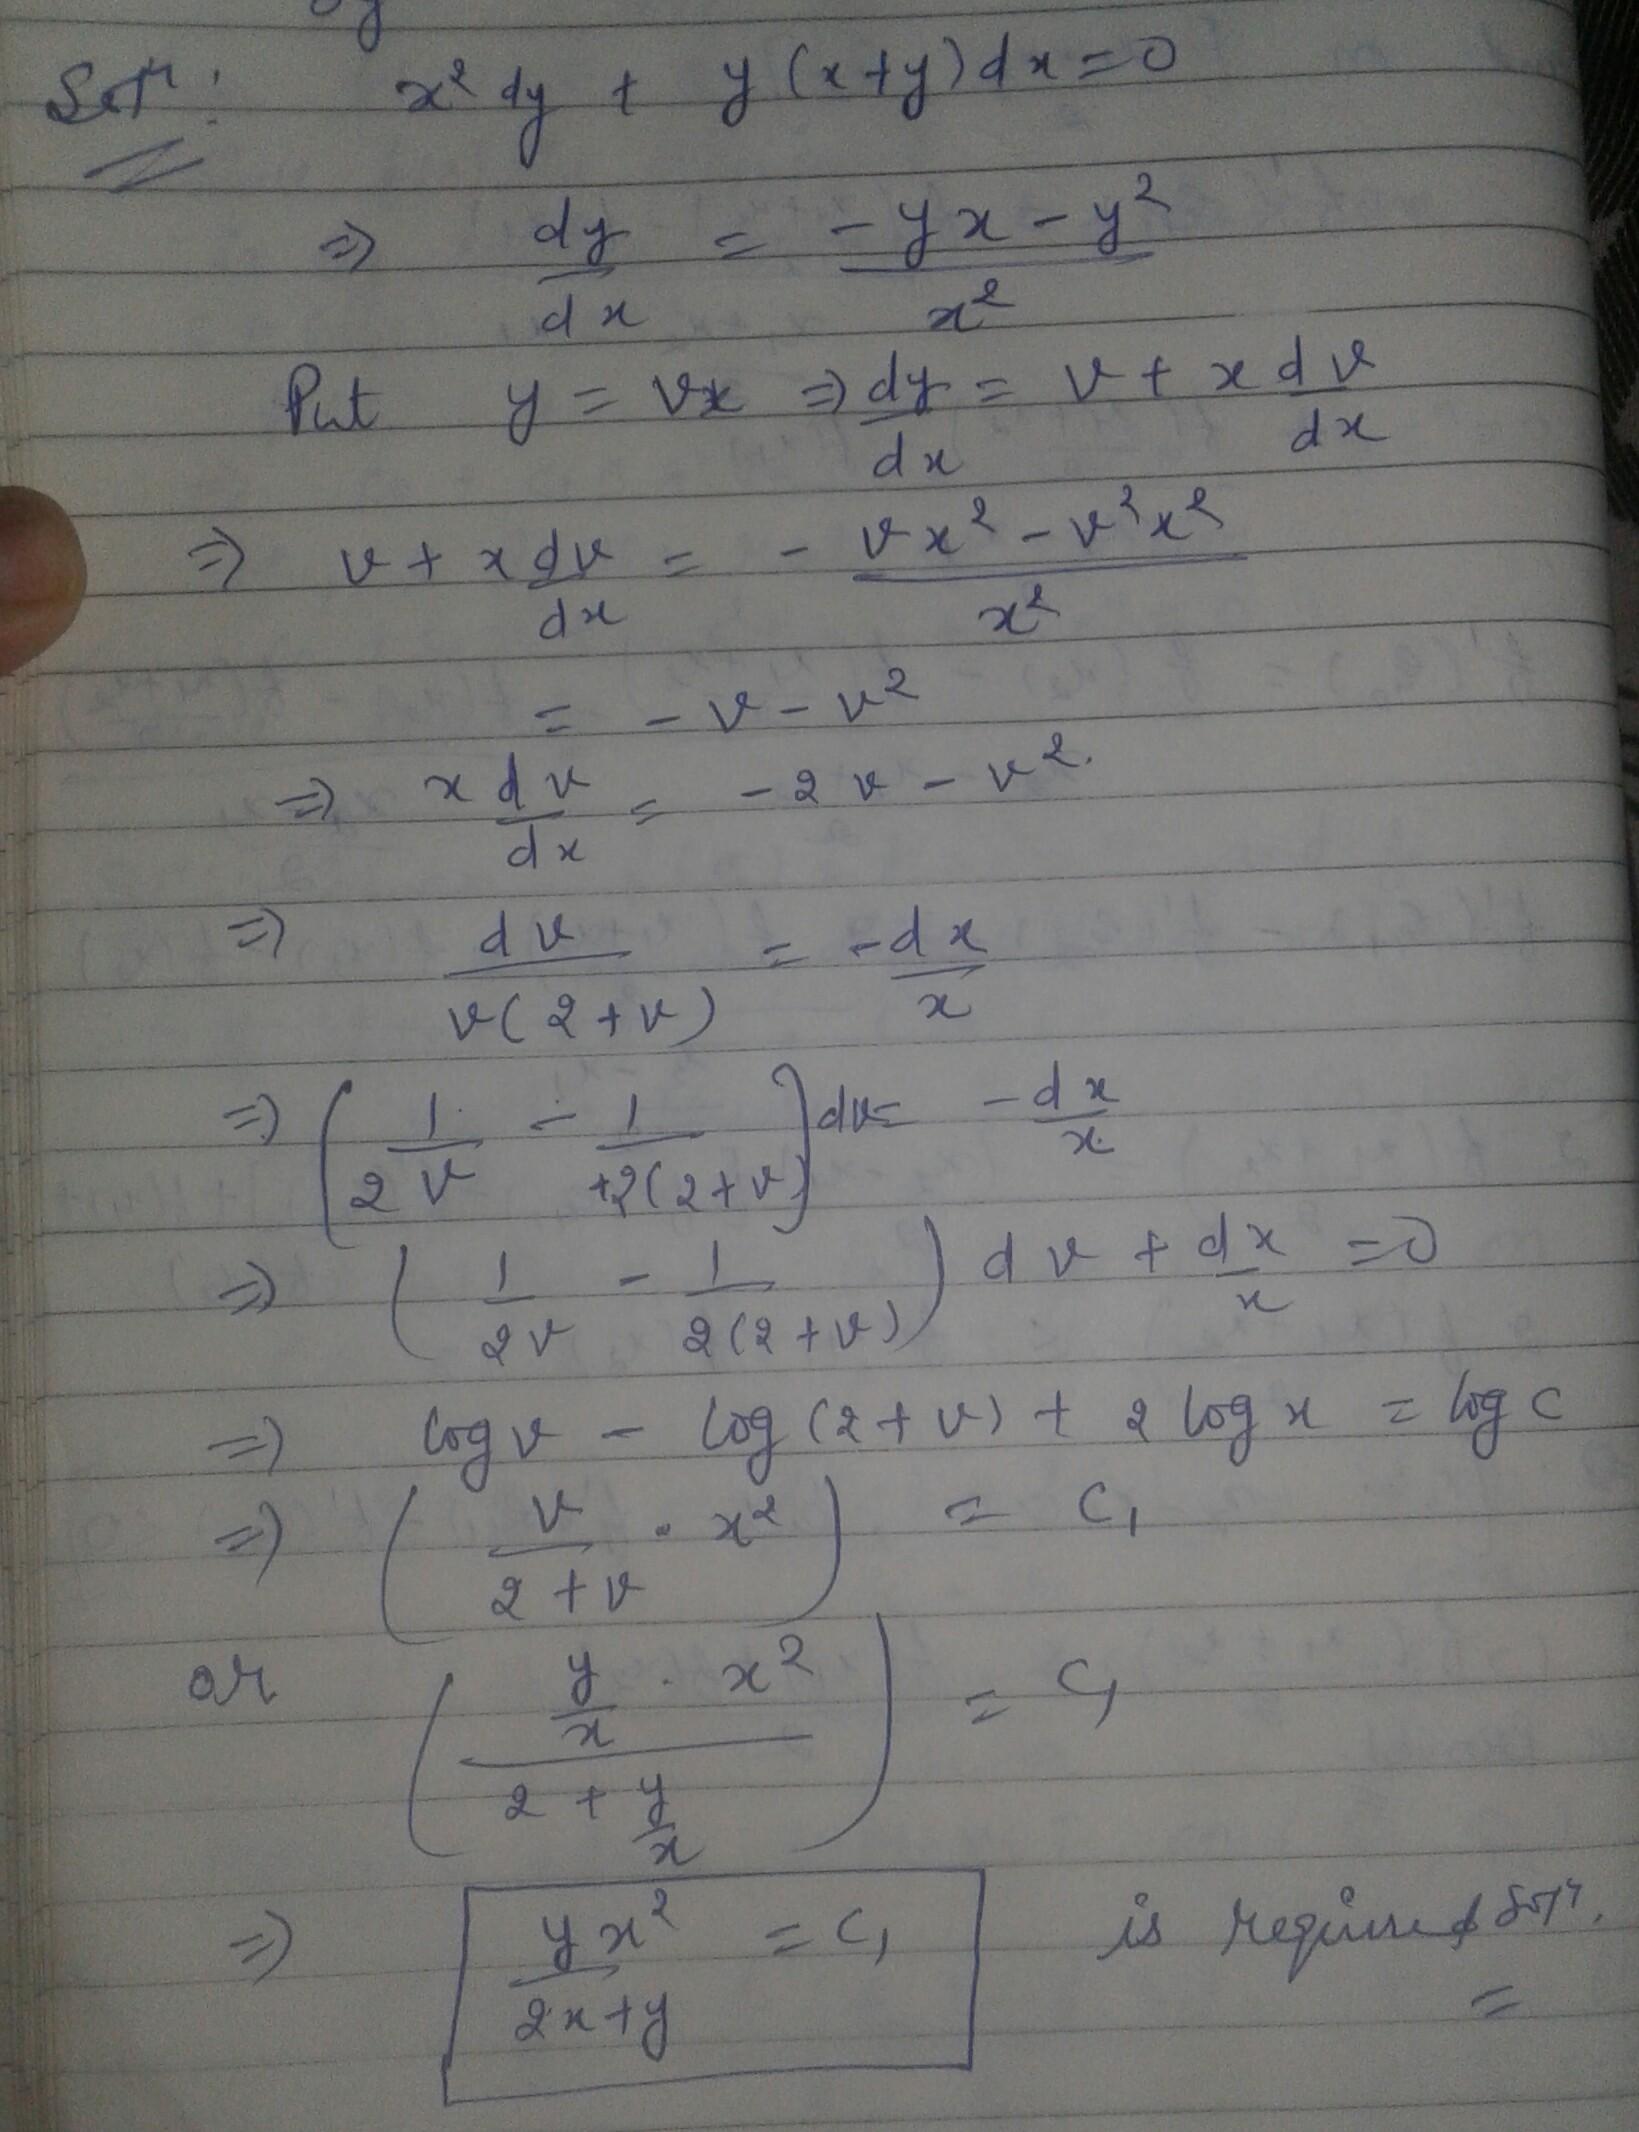 Solⁿ: x² dy + y (x+y) dx = 0
⇒ dy/dx = (-yx - y²)/x²
Put y = vx ⇒ dy/dx = v + x dv/dx
⇒ v + x dv/dx = - (vx² - v²x²)/x²
= - v - v²
⇒ x dv/dx = - 2v - v².
⇒ dv/(v(2+v)) = - dx/x
⇒ (1/(2v) - 1/(+2(2+v))) dv = - dx/x
⇒ (1/(2v) - 1/(2(2+v))) dv + dx/x = 0
⇒ log v - log (2+v) + 2 log x = log c
⇒ (v/(2+v) · x²) = C₁
or ((y/x · x²)/(2 + y/x)) = C₁
⇒ yx²/(2x+y) = C₁ is required solⁿ.